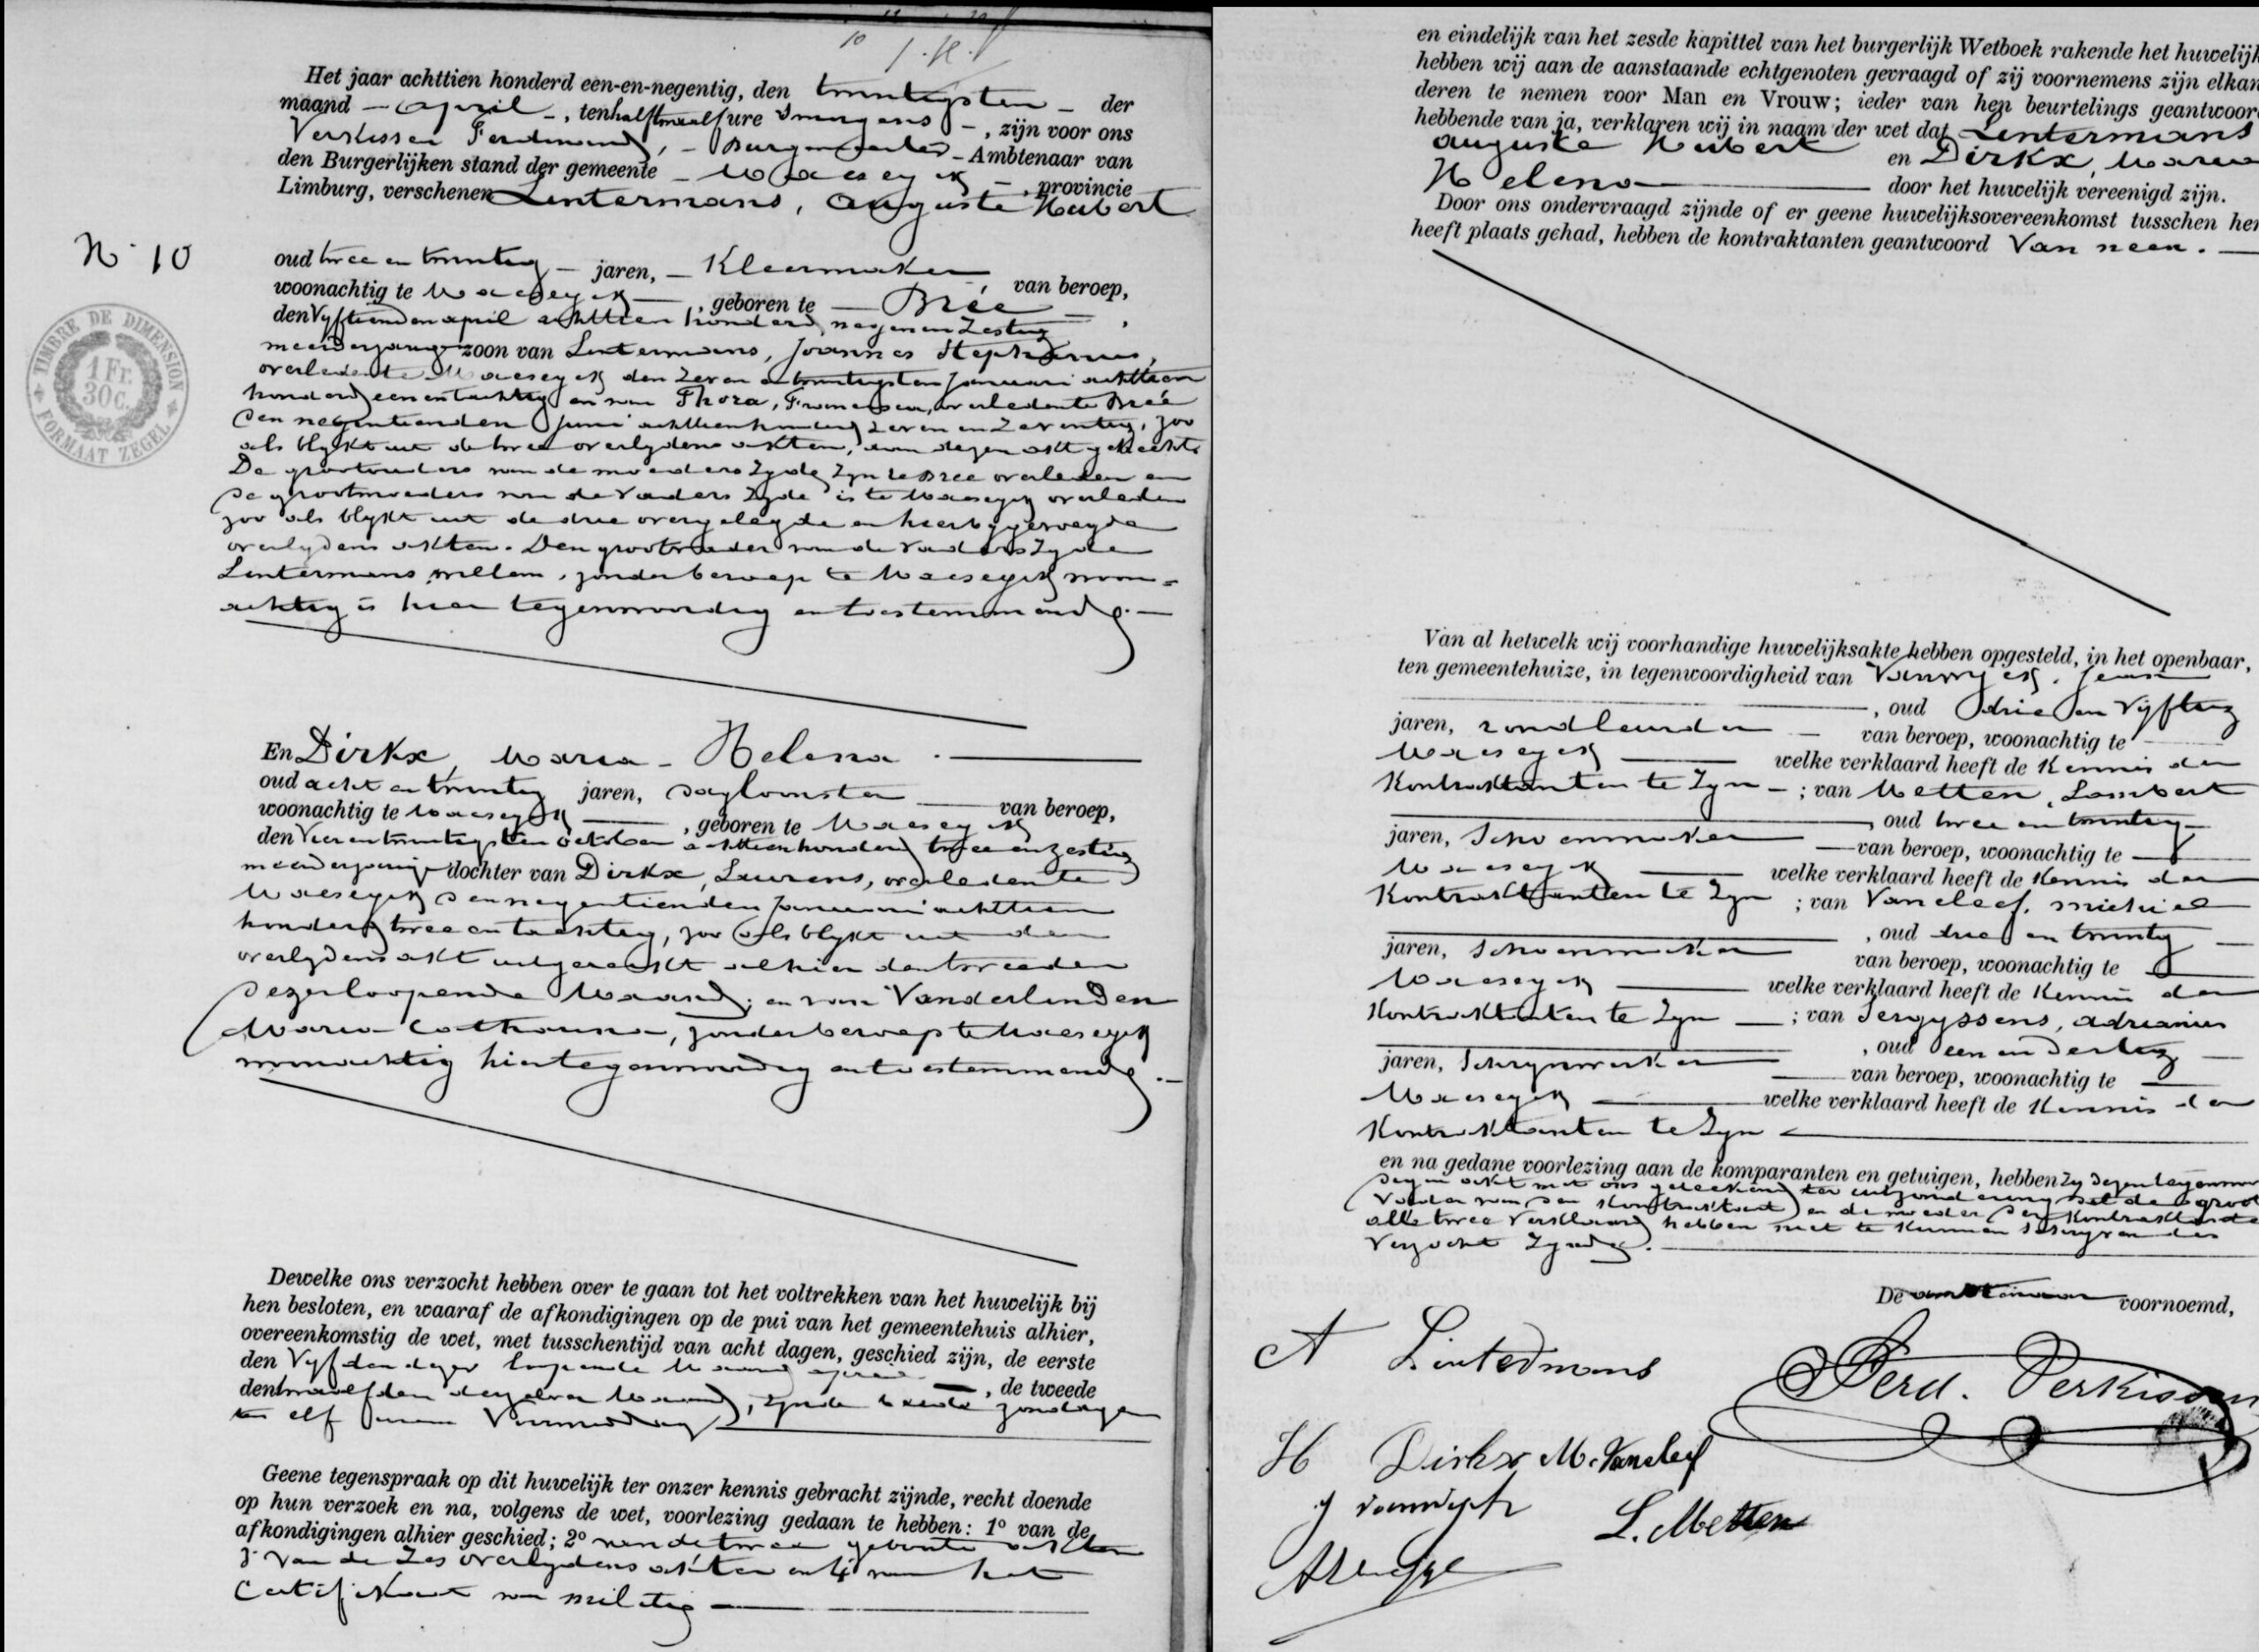 Het jaar achttien honderd een-en-negentig, den twintigsten der
maand april, ten half twaalf ure 's morgens, zijn voor ons
Verkissen Ferdinand, Burgemeester Ambtenaar van
den Burgerlijken stand der gemeente Maeseyck, provincie
Limburg, verschenen Lintermans, Auguste Hubert
N. 10
TIMBRE DE DIMENSION
1 Fr.
30 c.
FORMAAT ZEGEL
oud twee en twintig jaren, Kleermaker van beroep,
woonachtig te Maeseyck, geboren te Brée,
den Vyftienden april achttien honderd negen en Zestig
meerderjarige zoon van Lintermans, Joannes Stephanus,
overleden te Maeseyck den Zeven en twintigsten Januari achttien
honderd een en tachtig en van Thora, Francisca, overleden te Brée
den negentienden Juni achttienhonderd zeven en Zeventig, zoo
als blykt uit de twee overlydens akten, aan dezen akt gehecht.
De grootouders van de moeders Zyde Zyn te Bree overleden en
de grootmoeder van de Vaders Zyde is te Maeseyck overleden
zoo als blykt uit de drie overgelegde en hierbygevoegde
overlydens akten. Den grootvader van de Vaders Zyde
Lintermans, willem, zonder beroep te Maeseyck woon-
achtig is hier tegenwoordig en toestemmend.
En Dirkx, Maria-Helena.
oud acht en twintig jaren, dagloonster van beroep,
woonachtig te Maeseyck, geboren te Maeseyck
den Vier en twintigsten october achttienhonderd twee en zestig
meerderjarige dochter van Dirkx, Laurens, overleden te
Maeseyck den negentienden Januari achttien
honderd twee en tachtig, zoo als blykt uit den
overlydens akt uitgereikt alhier den tweeden
dezer loopende Maand; en van Vanderlinden
Maria-Catharina, zonder beroep te Maeseyck
woonachtig hier tegenwoordig en toestemmend.
Dewelke ons verzocht hebben over te gaan tot het voltrekken van het huwelijk bij
hen besloten, en waaraf de afkondigingen op de pui van het gemeentehuis alhier,
overeenkomstig de wet, met tusschentijd van acht dagen, geschied zijn, de eerste
den Vyfden dezer loopende Maand april, de tweede
den twaalfden derzelver Maand, zynde beide zondagen
ten elf uren Voormiddag
Geene tegenspraak op dit huwelijk ter onzer kennis gebracht zijnde, recht doende
op hun verzoek en na, volgens de wet, voorlezing gedaan te hebben: 1° van de
afkondigingen alhier geschied; 2° van de twee geboorte akten
3° van de Zes overlydens akten en 4° van het
Certifikaat van militie
en eindelijk van het zesde kapittel van het burgerlijk Wetboek rakende het huwelijk
hebben wij aan de aanstaande echtgenoten gevraagd of zij voornemens zijn elkan
deren te nemen voor Man en Vrouw; ieder van hen beurtelings geantwoor
hebbende van ja, verklaren wij in naam der wet dat Lintermans
Auguste Hubert en Dirkx, Maria
Helena door het huwelijk vereenigd zijn.
Door ons ondervraagd zijnde of er geene huwelijksovereenkomst tusschen hen
heeft plaats gehad, hebben de kontraktanten geantwoord Van neen.
Van al hetwelk wij voorhandige huwelijksakte hebben opgesteld, in het openbaar,
ten gemeentehuize, in tegenwoordigheid van Vanwyck, Jean
, oud drie en Vyftig
jaren, rondleurder van beroep, woonachtig te
Maeseyck welke verklaard heeft de Kennis der
Kontraktanten te Zyn; van Metten, Lambert
, oud twee en twintig
jaren, Schoenmaker van beroep, woonachtig te
Maeseyck welke verklaard heeft de Kennis der
Kontraktanten te Zyn; van Vancleef, michiel
, oud drie en twintig
jaren, Schoenmaker van beroep, woonachtig te
Maeseyck welke verklaard heeft de Kennis der
Kontraktanten te Zyn; van Sergyssens, adrianus
, oud een en dertig
jaren, Schrynwerker van beroep, woonachtig te
Maeseyck welke verklaard heeft de Kennis der
Kontraktanten te Zyn
en na gedane voorlezing aan de komparanten en getuigen, hebben Zy dezen
dezen akt met ons geteekend ter uitzondering de groot
Vader van den Kontraktant en de moeder der Kontraktante
alle twee Verklaard hebben niet te Kunnen Schryven des
Verzocht Zynde.
De ambtenaar voornoemd,
A Lintermans
Ferd. Verkissen
H Dirkx M. Vancleef
J vanwyck
L. Metten